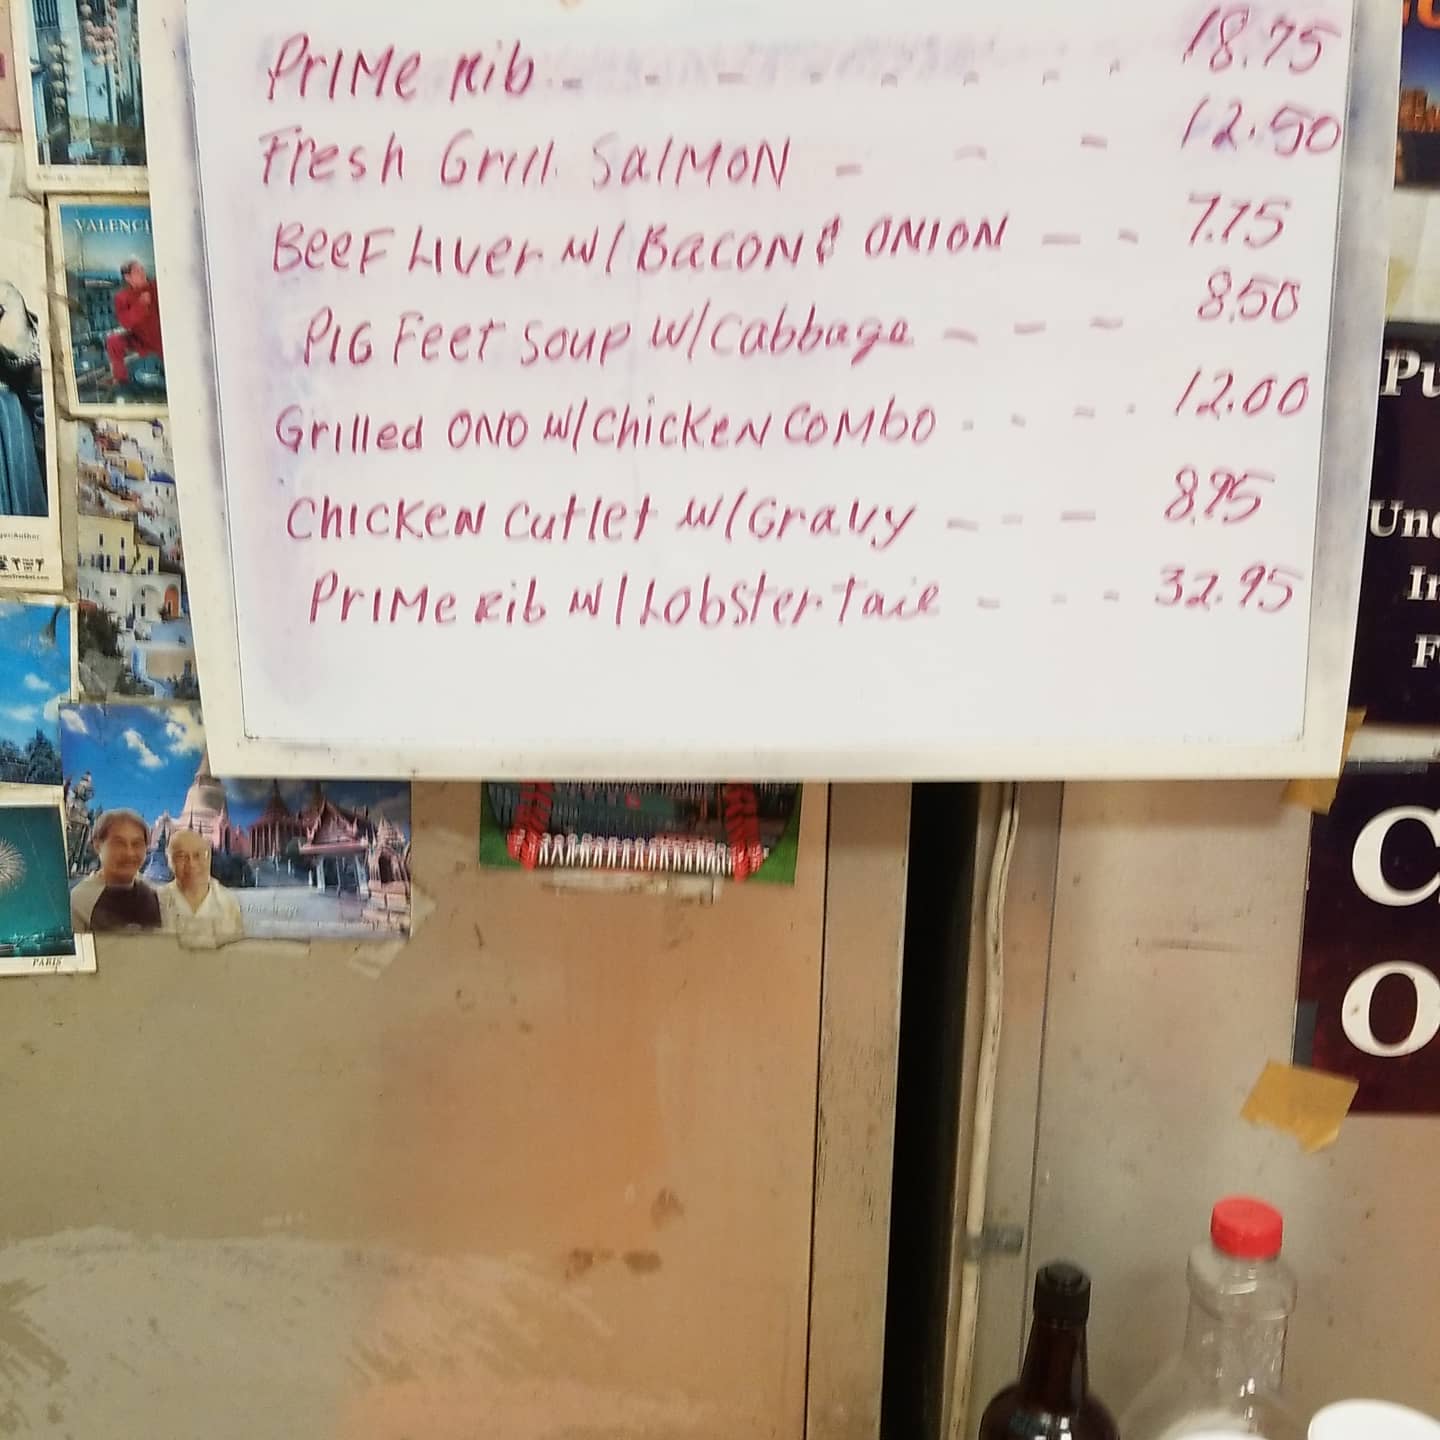 PRIME RIB - - - - - - - - 18.75
Fresh Grill SalMON - - - 12.50
BEEF LIVER W/ BACON & ONION - - 7.75
PIG FEET SOUP W/Cabbage - - - 8.50
Grilled ONO W/CHICKEN COMBO - - - - 12.00
CHICKEN CUTLET W/GRAVY - - -
PRIME RIB W/ LOBSTER TAIL - - - 32.95
VALENCI
PARIS
Pu
Un
In
F
C
O